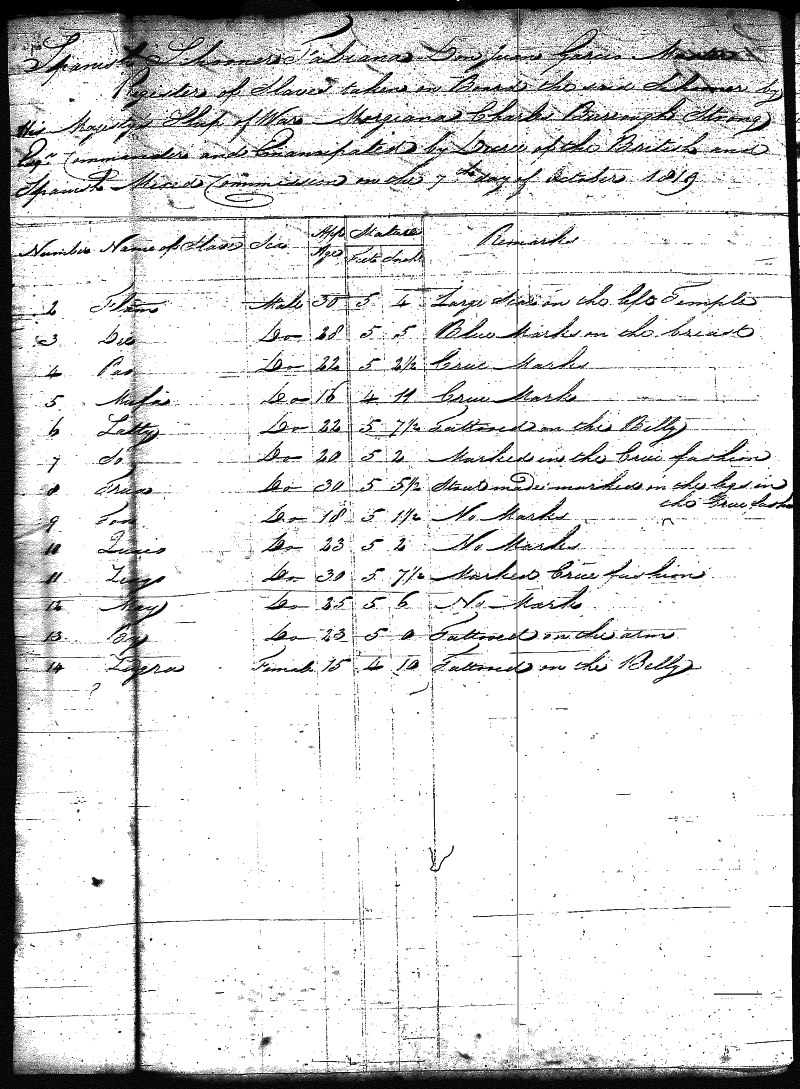 Spanish Schooner Fabiana Don Juan Garcia Master
Register of Slaves taken on Board the said Schooner by
His Majesty's Ship of War Morgiana Charles Barough Strong
Esqr. Commander and Emancipated by Decree of the British and
Spanish Mixed Commission on the 7th day of October 1819
Number Name of Slave Sex App Age Stature Feet Inch Remarks
2 Male 30 5 4 Large Scar on the left Temple
3 Do 28 5 5 Blue Marks on the breast
4 Pao Do 22 5 2½ Crue Marks
5 Do 16 4 11 Crue Marks
6 Latty Do 22 5 7½ Tattooed on the Belly
7 So Do 20 5 2 Marked in the Crue fashion
8 Do 30 5 5½ Stout made marked on the legs in
the Crue fashion
9 Do 18 5 1½ No Marks
10 Do 23 5 2 No Marks
11 Do 30 5 7½ Marked Crue fashion
12 May Do 25 5 6 No Mark
13 Do 23 5 0 Tattooed on the arm
14 Female 15 4 10 Tattooed on the Belly